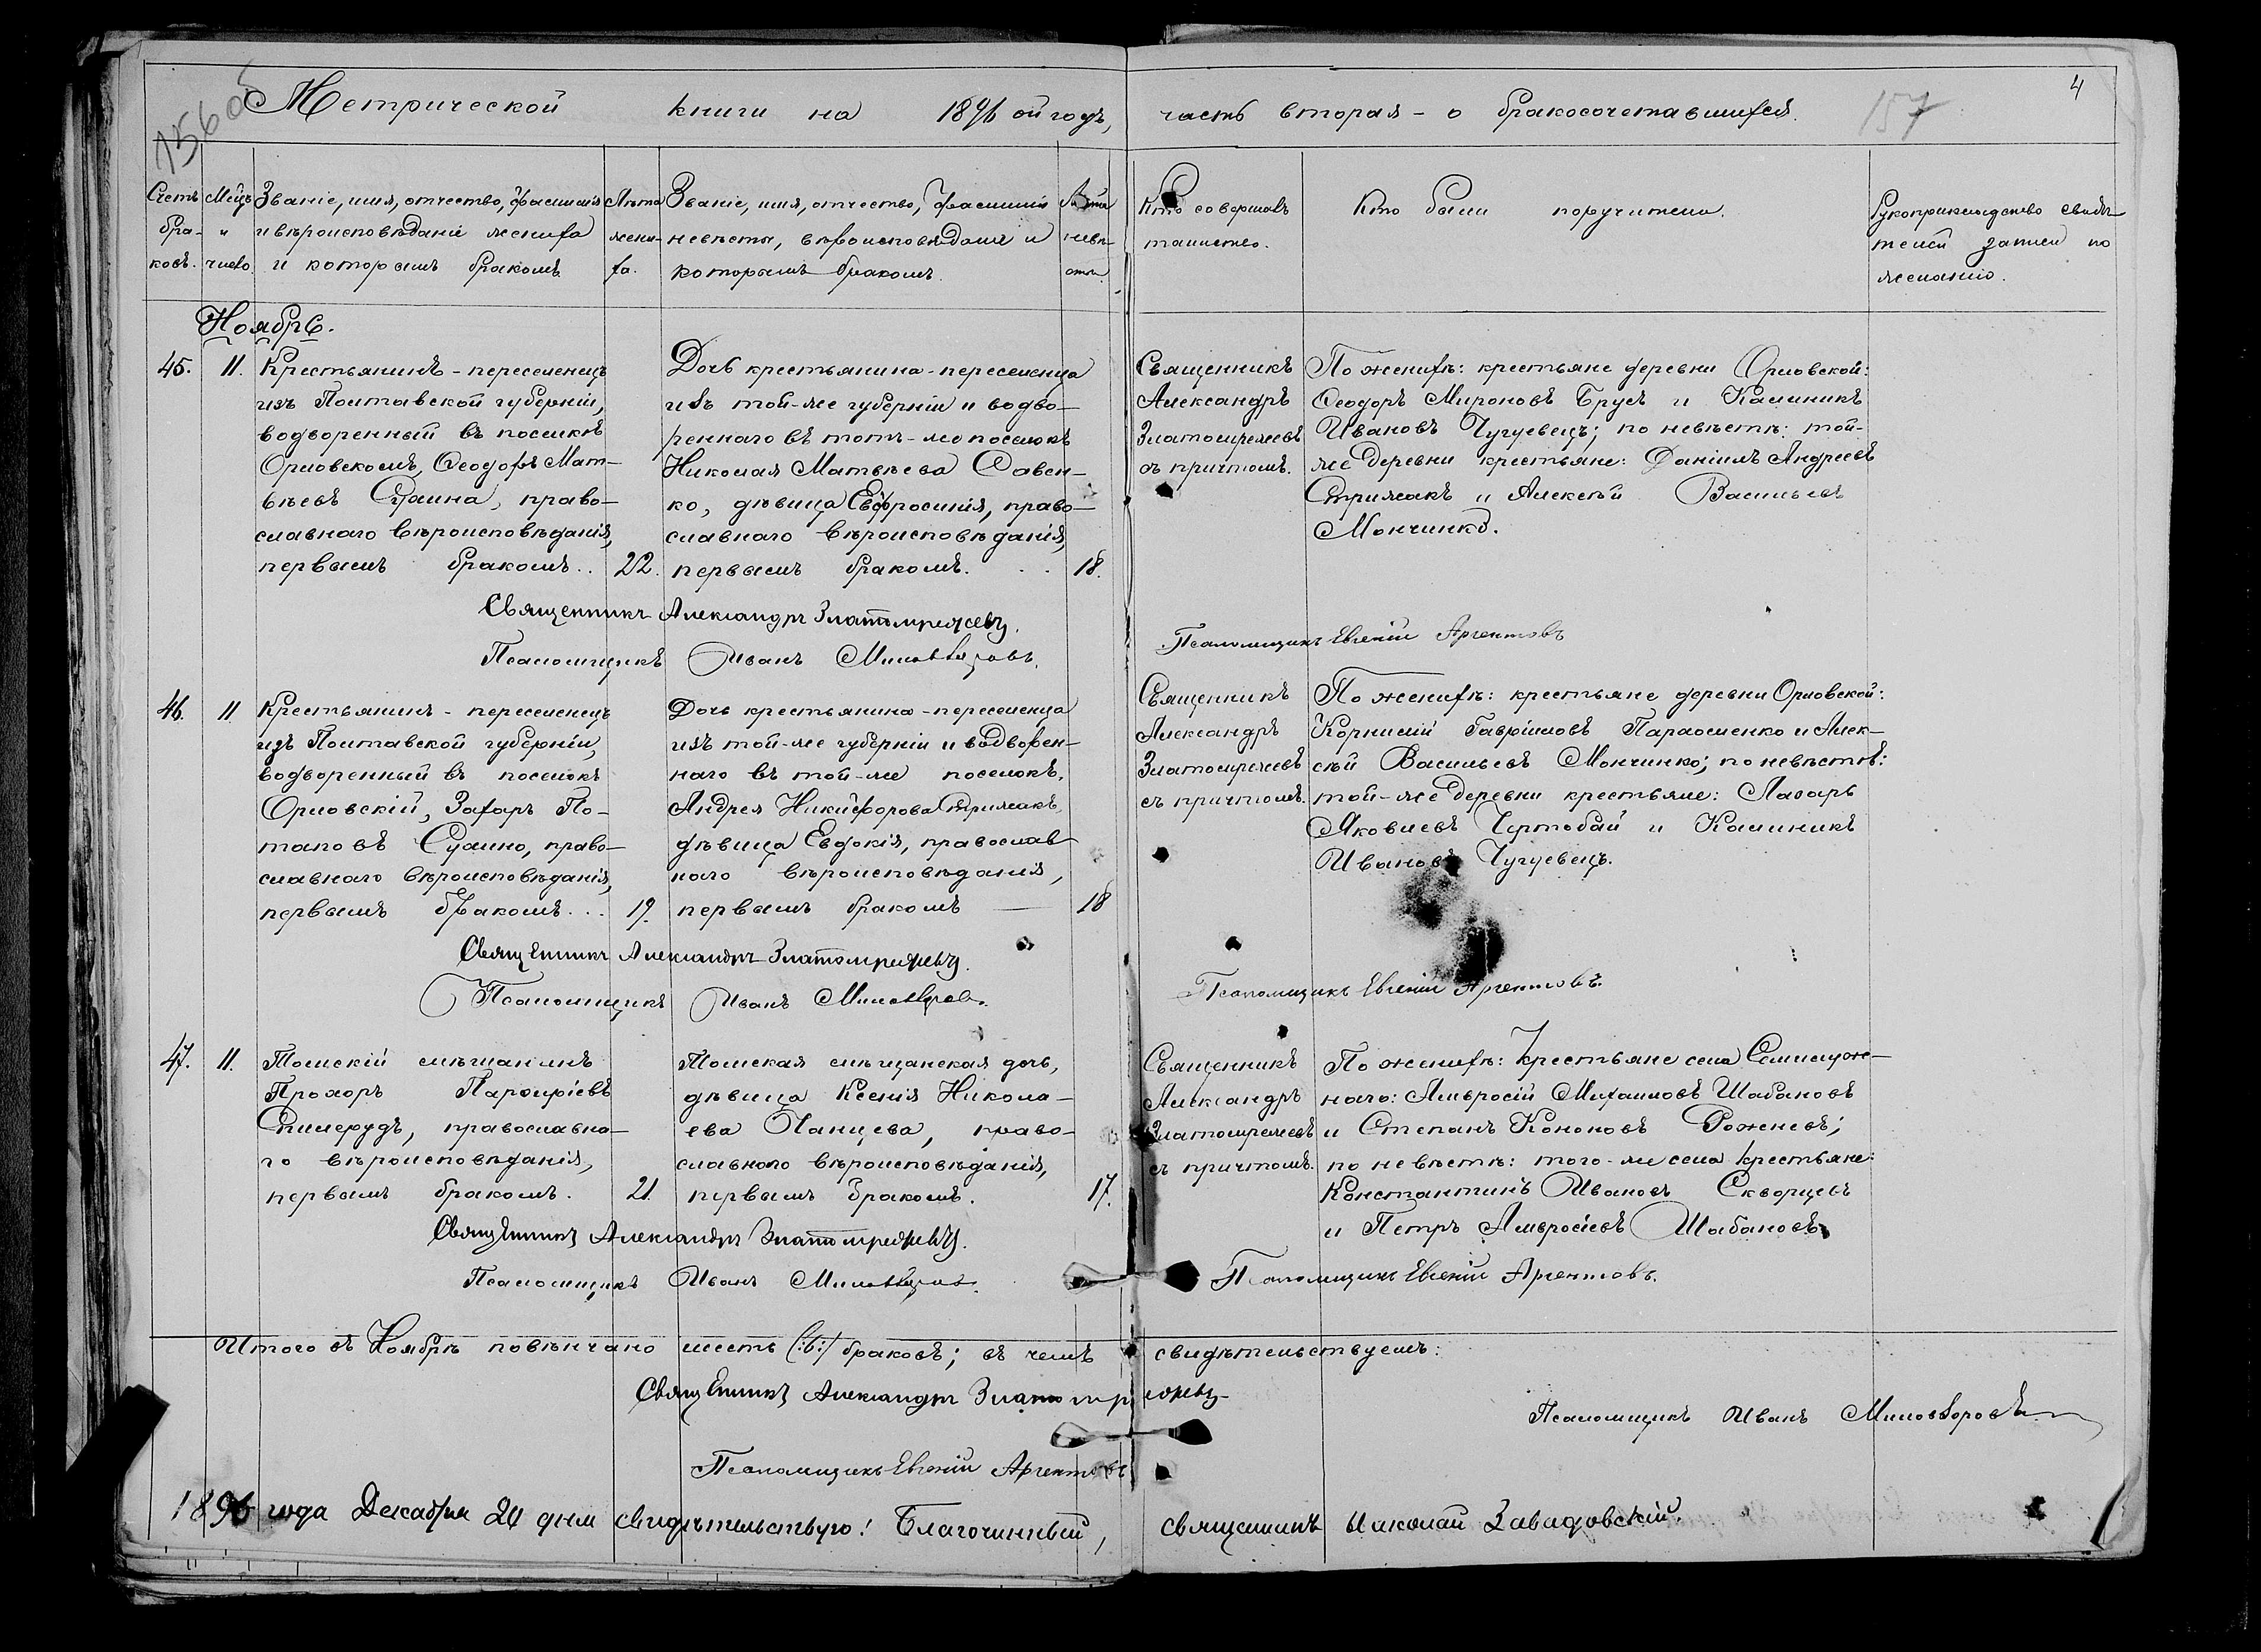 156об
4
Метрической книги на 1896 ой годъ, часть вторая - о бракосочетавшихся.
157
Счетъ бра-ковъ.
Мѣцъ и число.
Званіе, имя, отчество, фамилія
и вѣроисповѣданіе жениха
и которымъ бракомъ
Лѣта
жени-
ха.
Званіе, имя, отчество, фамилія
невѣсты, вѣроисповѣданіе и
которымъ бракомъ.
Лѣта
невѣ-
сты.
Кто совершалъ
таинство.
Кто были поручители.
Рукоприкладство свидѣ-
телей записи по
желанію.
Ноябрь.
45.
11.
Крестьянинъ - переселенецъ
изъ Полтавской губерніи,
водворенный въ поселкѣ
Орловскомъ, Ѳеодоръ Мат-
вѣевъ Сулима, право-
славнаго вѣроисповѣданія,
первымъ бракомъ..
22.
Дочь крестьянина - переселенца
изъ той-же губерніи и водво-
реннаго въ тотъ-же поселокъ
Николая Матвѣева Савен-
ко, дѣвица Евфросинія, право-
славнаго вѣроисповѣданія,
первымъ бракомъ. . .
18.
Священникъ
Александръ
Златомрежевъ
съ причтомъ.
По женихѣ: крестьяне деревни Орловской:
Ѳеодоръ Мироновъ Брусъ и Калиникъ
Ивановъ Чугуевецъ; по невѣстѣ: той-
же деревни крестьяне: Даніилъ Андреевъ
Стрижакъ и Алексѣй Васильевъ
Мончинко.
Священникъ Александръ Златомрежевъ.
Псаломщикъ Иванъ Миловзоровъ.
Псаломщикъ Евгеній Аргентовъ
46.
11
Крестьянинъ - переселенецъ
изъ Полтавской губерніи,
водворенный въ поселокъ
Орловскій, Захаръ По-
таповъ Сулимо, право-
славнаго вѣроисповѣданія,
первымъ бракомъ...
19.
Дочь крестьянина - переселенца
изъ той-же губерніи и водворен-
наго въ той-же поселокъ,
Андрея Никифорова Стрижакъ,
дѣвица Евдокія, православ-
наго вѣроисповѣданія,
первымъ бракомъ —
18
Священникъ
Александръ
Златомрежевъ
съ причтомъ.
По женихѣ: крестьяне деревни Орловской:
Корнилій Гавріиловъ Пархоменко и Алек-
сѣй Васильевъ Мончинко; по невѣстѣ:
той-же деревни крестьяне: Лазарь
Яковлевъ Чертобай и Калиникъ
Ивановъ Чугуевецъ.
Священникъ Александръ Златомрежевъ.
Псаломщикъ Иванъ Миловзоровъ.
Псаломщикъ Евгеній Аргентовъ.
47.
11.
Томскій мѣщанинъ
Прохоръ Парфиріевъ
православна-
го вѣроисповѣданія,
первымъ бракомъ.
21.
Томская мѣщанская дочь,
дѣвица Ксенія Никола-
ева Ханцева, право-
славнаго вѣроисповѣданія,
первымъ бракомъ.
17.
Священникъ
Александръ
Златомрежевъ
съ причтомъ.
По женихѣ: крестьяне села Семилуж-
наго: Амвросій Михаиловъ Шабановъ
и Степанъ Кононовъ Роженевъ;
по невѣстѣ: того-же села крестьяне:
Константинъ Ивановъ Скворцевъ
и Петръ Амвросіевъ Шабановъ.
Священникъ Александръ Златомрежевъ.
Псаломщикъ Иванъ Миловзоровъ.
Псаломщикъ Евгеній Аргентовъ.
Итого въ Ноябрѣ повѣнчано шесть (:6:) браковъ; въ чемъ свидѣтельствуемъ:
Священникъ Александръ Златомрежевъ
Псаломщикъ Иванъ Миловзоровъ
Псаломщикъ Евгеній Аргентовъ
1896 года Декабря 20 дня свидѣтельствую! Благочинный, священникъ Николай Завадовскій.